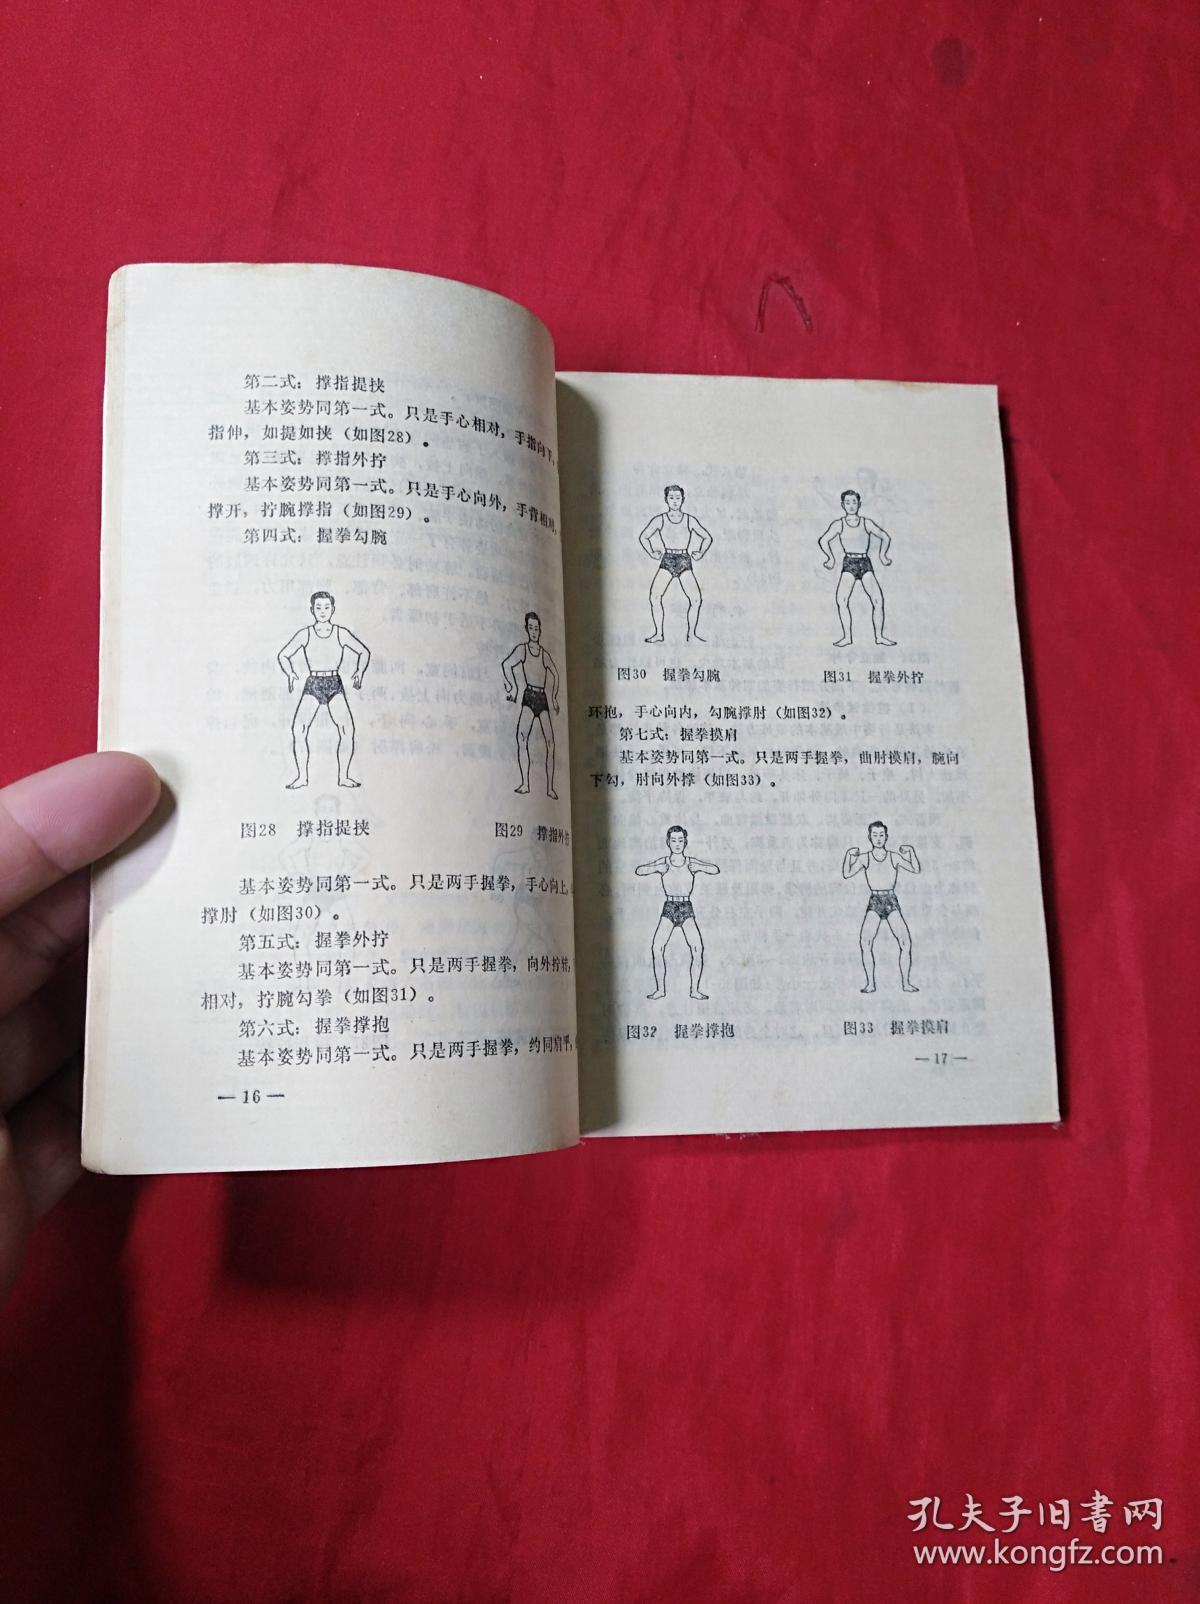 第二式：撑指提挟
基本姿势同第一式。只是手心相对，手指向下，
指伸，如提如挟（如图28）。
第三式：撑指外拧
基本姿势同第一式。只是手心向外，手背相对，
撑开，拧腕撑指（如图29）。
第四式：握拳勾腕
图28 撑指提挟
图29 撑指外拧
基本姿势同第一式。只是两手握拳，手心向上，
撑肘（如图30）。
第五式：握拳外拧
基本姿势同第一式。只是两手握拳，向外拧转，
相对，拧腕勾拳（如图31）。
第六式：握拳撑抱
基本姿势同第一式。只是两手握拳，约同肩平，
—16—
图30 握拳勾腕
图31 握拳外拧
环抱，手心向内，勾腕撑肘（如图32）。
第七式：握拳摸肩
基本姿势同第一式。只是两手握拳，曲肘摸肩，腕向
下勾，肘向外撑（如图33）。
图32 握拳撑抱
图33 握拳摸肩
—17—
孔夫子旧书网
www.kongfz.com